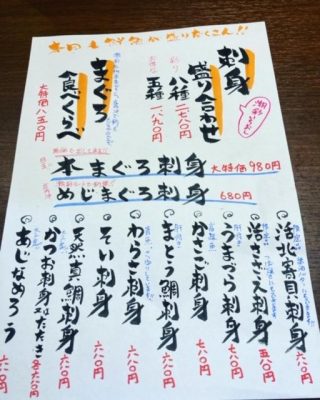 本日も鮮魚が盛りだくさん!!
刺身
盛り合わせ
八種 二七八〇円
五種 一八九〇円
まぐろ
食べくらべ
大特価 八五〇円
本まぐろ刺身 大特価 980円
めじまぐろ刺身 680円
活北寄貝刺身 六八〇円
活さざえ刺身 五八〇円
うまづら刺身 七八〇円
かさご刺身 七八〇円
まとう鯛刺身 六八〇円
わらさ刺身 六八〇円
そい刺身 六八〇円
天然真鯛刺身 六八〇円
かつお刺身又はたたき 各六八〇円
あじなめろう 六八〇円